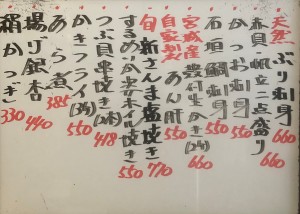 天然 ぶり刺身 660
赤貝・帆立二点盛り 660
かつお刺身 550
石垣鯛刺身 550
宮城産 殻付生かき(2ヶ) 660
自家製 あん肝 550
旬 新さんま塩焼き 770
するめいか姿焼き 550
つぶ貝串焼き(2本) 478
かきフライ(3ヶ) 550
あら煮 385
揚り銀杏 440
絹かつぎ 330